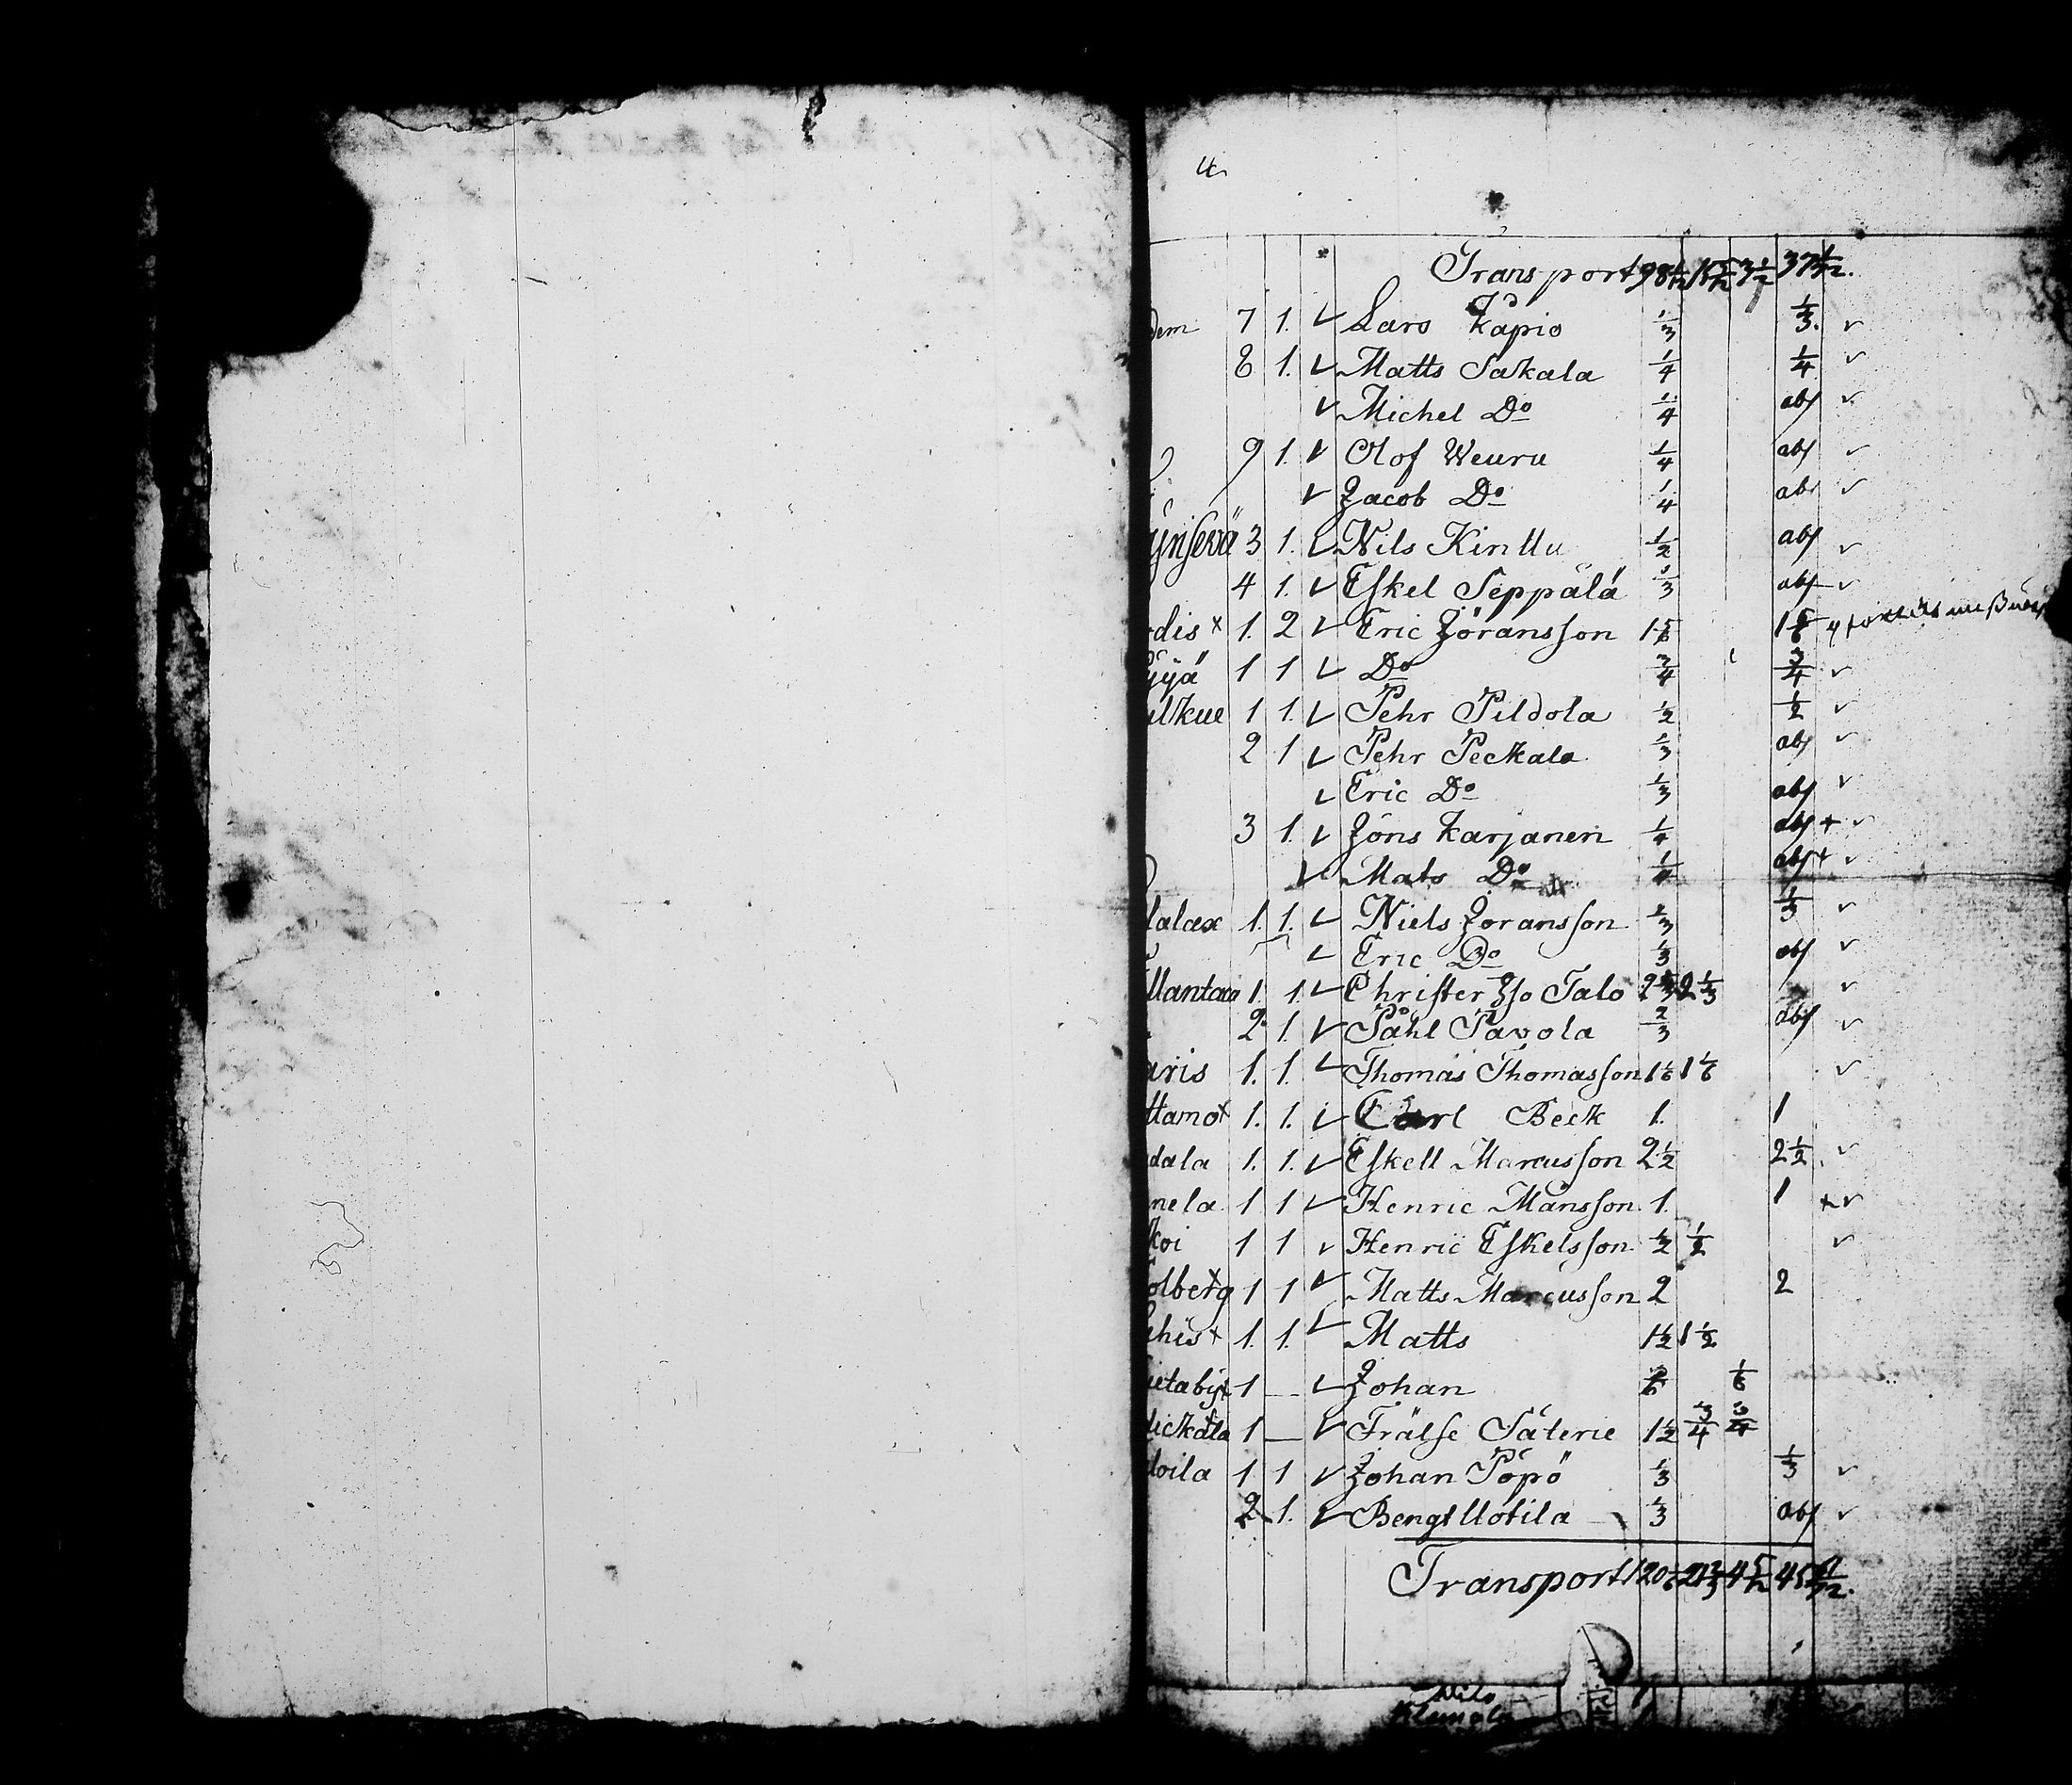 4
Transport 98 1/2 3 1/2 37
dem 7 1. Lars Kåpio 1/3 1/3.
8 1. Matts Sakala 1/4 1/4
Michel Do 1/4 abs
9 1. Olof Weuru 1/4 abs
Jacob Do 1/4 abs
ynsevä 3 1. Nils Kinttu 1/2 abs
4 1. Eskel Seppälä 1/3 abs
dis x 1. 2 Eric Göransson 1 5/6 1 5/6
yyä 1 1 Do 3/4 3/4
ulkue 1 1. Pehr Pildola 1/2 1/2
2 1 Pehr Peckala 1/3 abs
Eric Do 1/3 abs
3 1. Jöns Karjanen 1/4 abs +
Mats Do 1/4 abs +
lalax 1. 1. Niels Joransson 2/3 1/3
Eric Do 1/3 abs
llantaca 1. 1. Christer Jso Talo 2 1/3 2 1/3
2. 1. Påhl Pavola 2/3 abs
aris 1. 1. Thomas Thomasson 1 1/6 1 1/6
ttamo x 1. 1. Carl Beck 1. 1
dala 1. 1. Eskell Marcusson 2 1/2 2 1/2
nela 1 1 Henric Månsson 1. 1 +
koi 1 1 Henric Eskelsson 1/2 1/2
olberg 1 1 Matts Marcusson 2 2
uhis + 1. 1. Matts 1 1/2 1 1/2
ietaby x 1 — Johan 1/6
lickala 1 — Frälse Säterie 1 1/2 3/4 3/4
loila 1 1 Johan Pöpö 1/3 1/3
2 1. Bengt Uotila 1/3 abs
Transport 120 1/6 21 4 5/12 45
Nils
Klemola